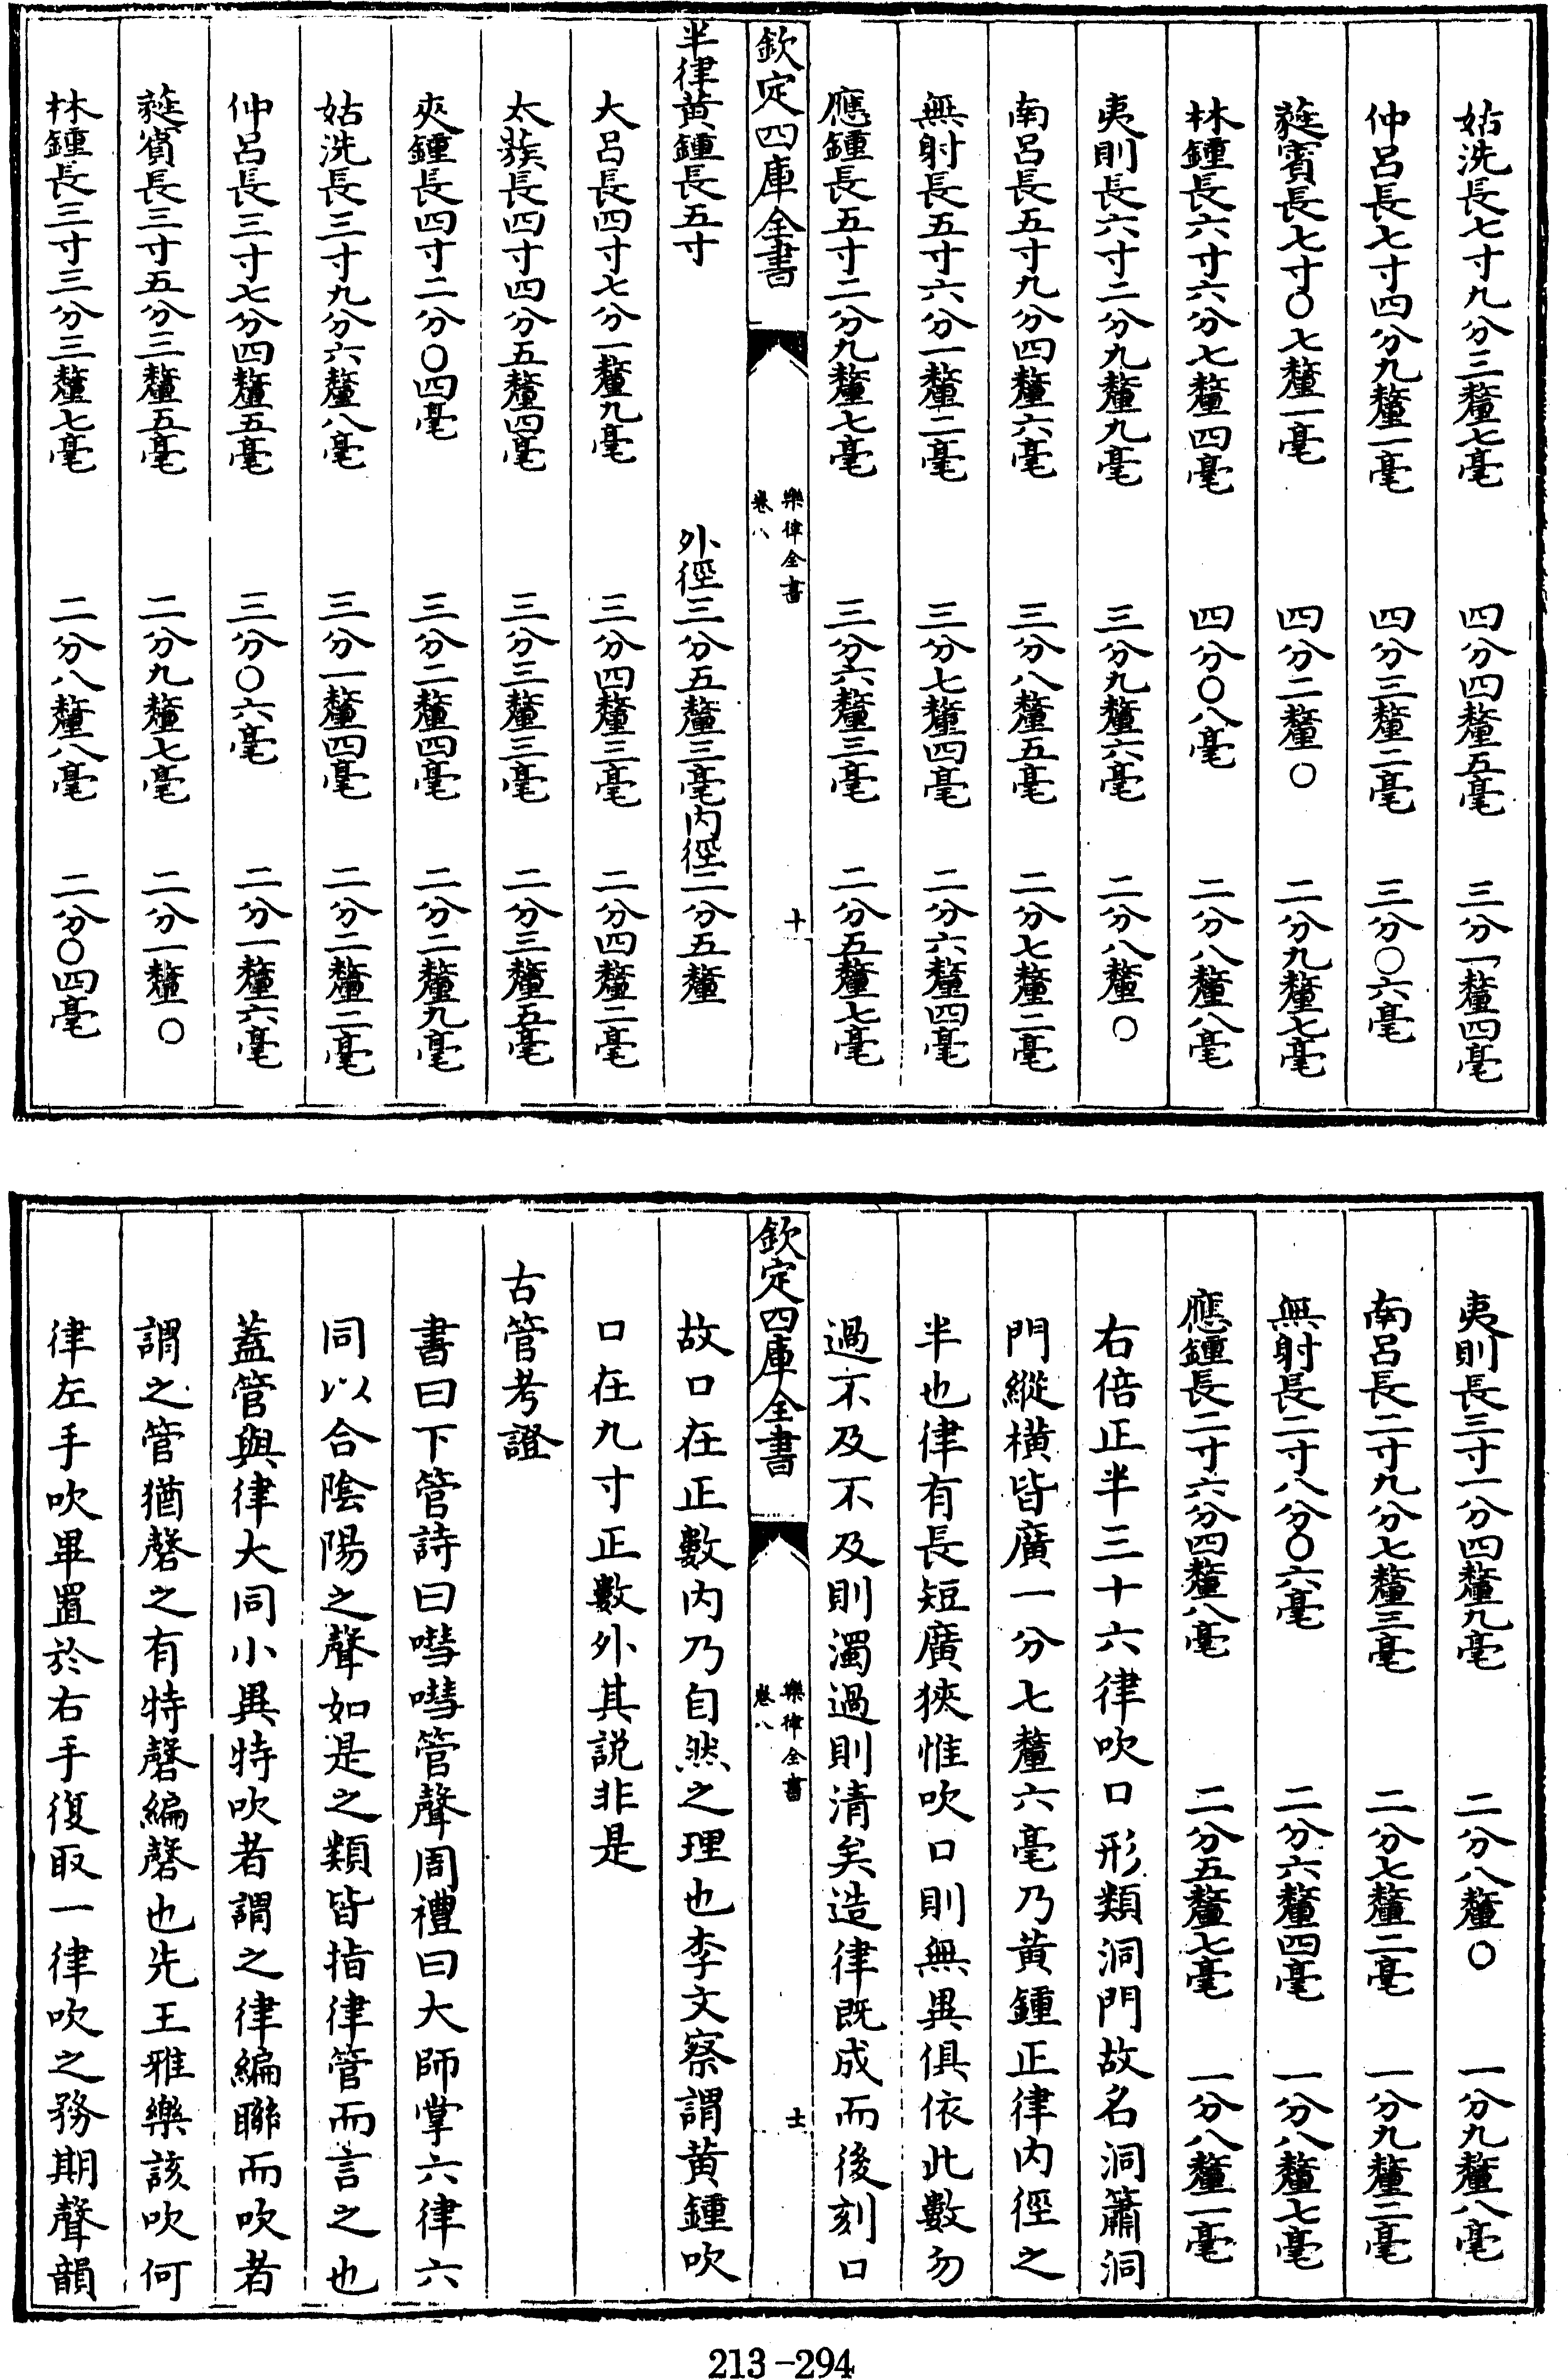 姑洗長七寸九分三釐七毫 四分四釐五毫 三分一釐四毫
仲呂長七寸四分九釐一毫 四分三釐二毫 三分〇六毫
蕤賓長七寸〇七釐一毫 四分二釐〇 二分九釐七毫
林鍾長六寸六分七釐四毫 四分〇八毫 二分八釐八毫
夷則長六寸二分九釐九毫 三分九釐六毫 二分八釐〇
南呂長五寸九分四釐六毫 三分八釐五毫 二分七釐二毫
無射長五寸六分一釐二毫 三分七釐四毫 二分六釐四毫
應鍾長五寸二分九釐七毫 三分六釐三毫 二分五釐七毫
欽定四庫全書 樂律全書 卷八 十
半律黃鍾長五寸 外徑三分五釐三毫內徑二分五釐
大呂長四寸七分一釐九毫 三分四釐三毫 二分四釐二毫
太蔟長四寸四分五釐四毫 三分三釐三毫 二分三釐五毫
夾鍾長四寸二分〇四毫 三分二釐四毫 二分二釐九毫
姑洗長三寸九分六釐八毫 三分一釐四毫 二分二釐二毫
仲呂長三寸七分四釐五毫 三分〇六毫 二分一釐六毫
蕤賓長三寸五分三釐五毫 二分九釐七毫 二分一釐〇
林鍾長三寸三分三釐七毫 二分八釐八毫 二分〇四毫
夷則長三寸一分四釐九毫 二分八釐〇 一分九釐八毫
南呂長二寸九分七釐三毫 二分七釐二毫 一分九釐二毫
無射長二寸八分〇六毫 二分六釐四毫 一分八釐七毫
應鍾長二寸六分四釐八毫 二分五釐七毫 一分八釐一毫
右倍正半三十六律吹口形類洞門故名洞簫洞
門縱橫皆廣一分七釐六毫乃黃鍾正律內徑之
半也律有長短廣狹惟吹口則無異俱依此數勿
過不及不及則濁過則清矣造律既成而後刻口
欽定四庫全書 樂律全書 卷八 十一
故口在正數內乃自然之理也李文察謂黃鍾吹
口在九寸正數外其說非是
古管考證
書曰下管詩曰嘒嘒管聲周禮曰大師掌六律六
同以合陰陽之聲如是之類皆指律管而言之也
蓋管與律大同小異特吹者謂之律編聯而吹者
謂之管猶磬之有特磬編磬也先王雅樂該吹何
律左手吹畢置於右手復取一律吹之務期聲韻
213-294